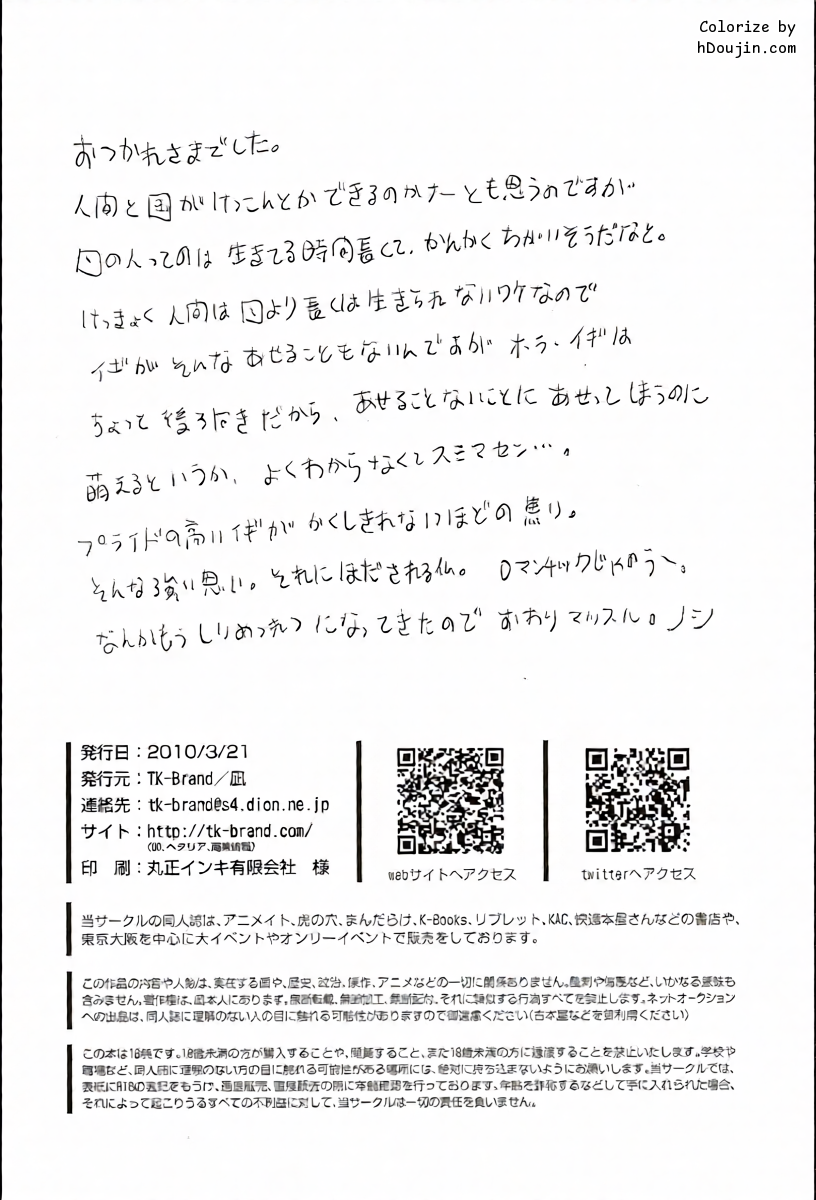 Colorize by
hDoujin.com
おつかれさまでした。
人間と国がけっこんとかできるのかナーとも思うのですが
国の人ってのは 生きてる時間長くて、かんかくちがいそうだなと。
けっきょく 人間は 国より長くは生きられないワケなので
イギがそんなあせることもないんですよが ホラ、イギは
ちょっと後ろ向きだから、あせることないことにあせってしまうのに
萌えるというか、よくわからなくてスミマセン…。
プライドの高いイギがかくしきれないほどの焦り。
そんな強い思い。それにほだされる仏。ロマンチックじゃのうへ。
なんかもうしりめつれつになってきたので おわりマッスル。ノシ
発行日:2010/3/21
発行元:TK-Brand/凪
連絡先:tk-brand@s4.dion.ne.jp
サイト:http://tk-brand.com/
印 刷:丸正インキ有限会社 様
webサイトへアクセス
twitterへアクセス
当サークルの同人誌は、アニメイト、虎の穴、まんだらけ、K-Books、リブレット、KAC、快適本屋さんなどの書店や、
東京大阪を中心に大イベントやオンリーイベントで販売をしております。
この作品の内容や人物は、実在する国や、歴史、政治、原作、アニメなどの一切に関係ありません。批判や侮辱など、いかなる意味も
含みません。著作権は、凪本人にあります。無断転載、無断加工、無断配布、それに類似する行為すべてを禁止します。ネットオークション
への出品は、同人誌に理解のない人の目に触れる可能性がありますので御遠慮ください(古本屋などを御利用ください)
この本は18禁です。18歳未満の方が購入することや、閲覧すること、また18歳未満の方に譲渡することを禁止いたします。学校や
職場など、同人誌に理解のない方の目に触れる可能性がある場所には、絶対に持ち込まないようにお願いします。当サークルでは、
表紙にR18の表記をもうけ、通信販売、直接販売の際に年齢確認を行っております。年齢を詐称するなどして手に入れられた場合、
それによって起こりうるすべての不利益に対して、当サークルは一切の責任を負いません。